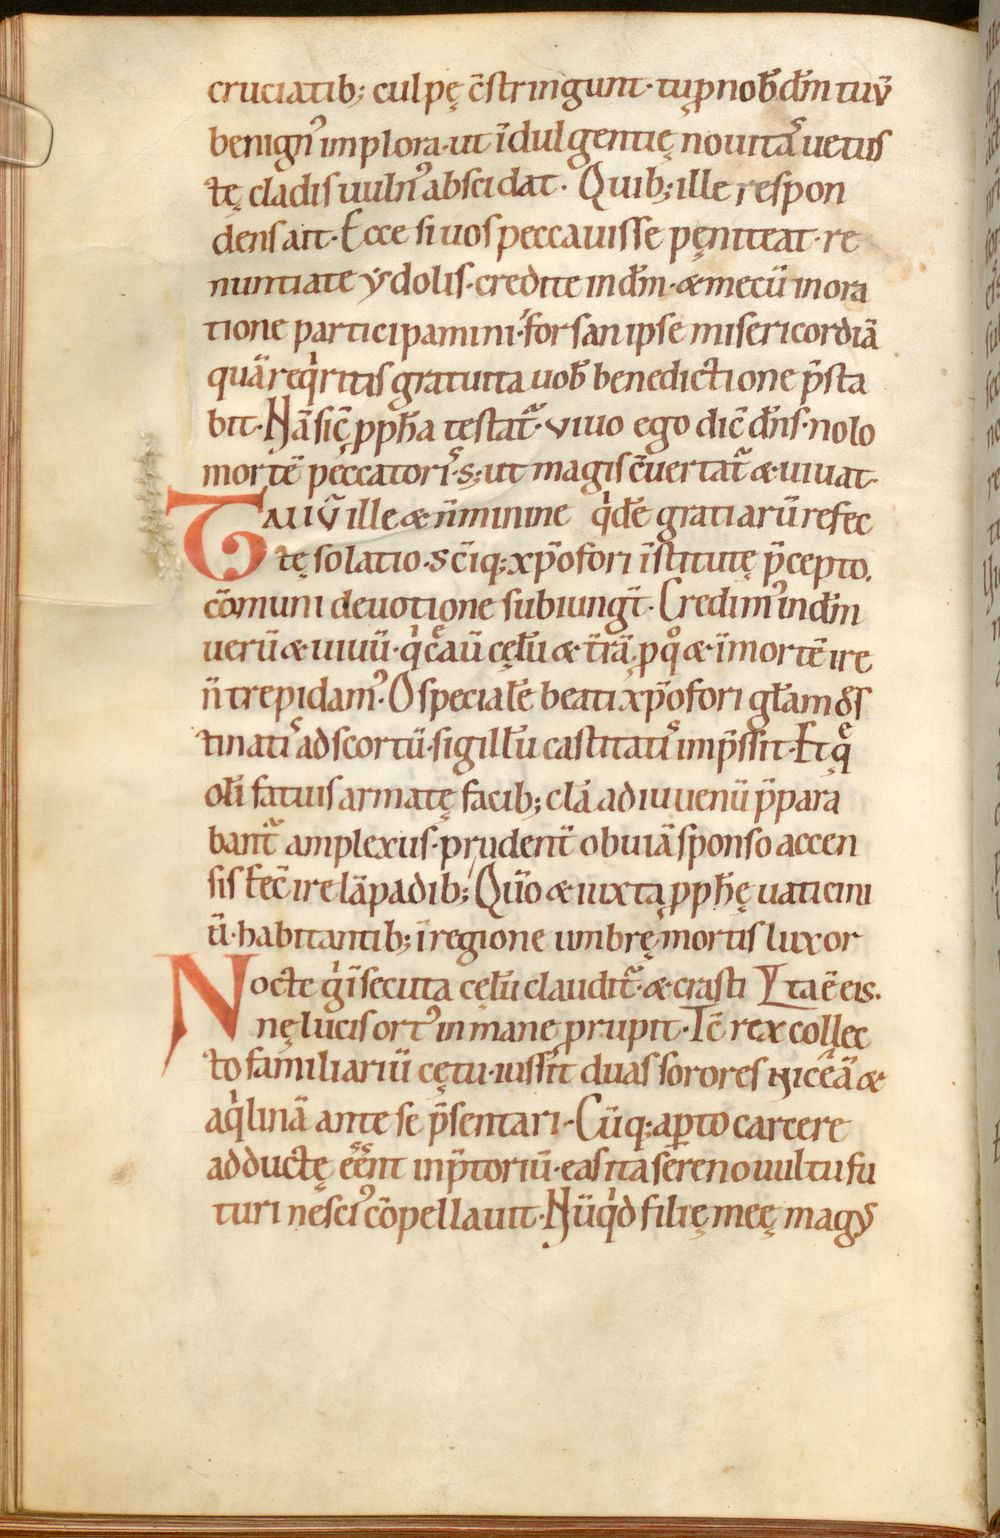 cruciatib; culpę c̄stringunt · tu ꝓ nob̄ dn̄m tuū
benignꝰ implora · ut īdulgentię nouitaſ uetuſ
tę cladiſ uulnꝰ abſcidat · Quib; ille reſpon
denſ ait · Ecce ſi uoſ peccauiſſe pęniteat · re
nuntiate ydoliſ · credite in dm̄ · & mecū in ora
tione participamini · forſan ipſe miſericordiā
quā reqͥritiſ gratuita uob̄ benedictione p̄ſta
bit · Nā ſic̄ ꝓph̄a teſtat᷑ · viuo ego dic̄ dn̄ſ · nolo
mortē peccatoriſ · s; ut magiſ c̄uertat᷑ & uiuat ·
Tali ū ille & n̄ minime qͥdē gratiarū refec
tę ſolatio · sc̄iq; xp̄ofori īſtitutę p̄cepto .
cōmuni deuotione ſubiungt̄ · Credimꝰ in dm̄
uerū & uiuū · qͥ c̄auͥ cęlū & t̄rā · ꝓ qͦ & ī mortē ire
n̄ trepidamꝰ · O ſpecialē beati xp̄ofori gl̄am dſ
tinatiſ ad ſcortū · ſigillū caſtitatiſ imp̄ſſit · Et qͣę
olī fatuiſ armatę facib; clā ad iuuenū p̄para
bant᷑ amplexuſ · prudent̄ obuiā ſponſo accen
ſiſ fec̄ ire lāpadib; Quō & iuxta ꝓph̄ę uaticini
ū · habitantib; ī regione umbrę mortiſ lux or
Nocte gͥ īſecuta cęlū claudit᷑ · & craſti ta ē eiſ .
nę luciſ ortꝰ in mane ꝓrupit · Tc̄ rex collec
to familiariū cętu · iuſſit duaſ ſororeſ Niceā &
aqͥlinā ante ſe p̄ſentari · Cūq; aꝑto carcere
adductę eēnt in p̄toriū · eaſ ita ſereno uultu fu
turi neſciꝰ cōpellauit · Nūqͥd filię meę magiſ